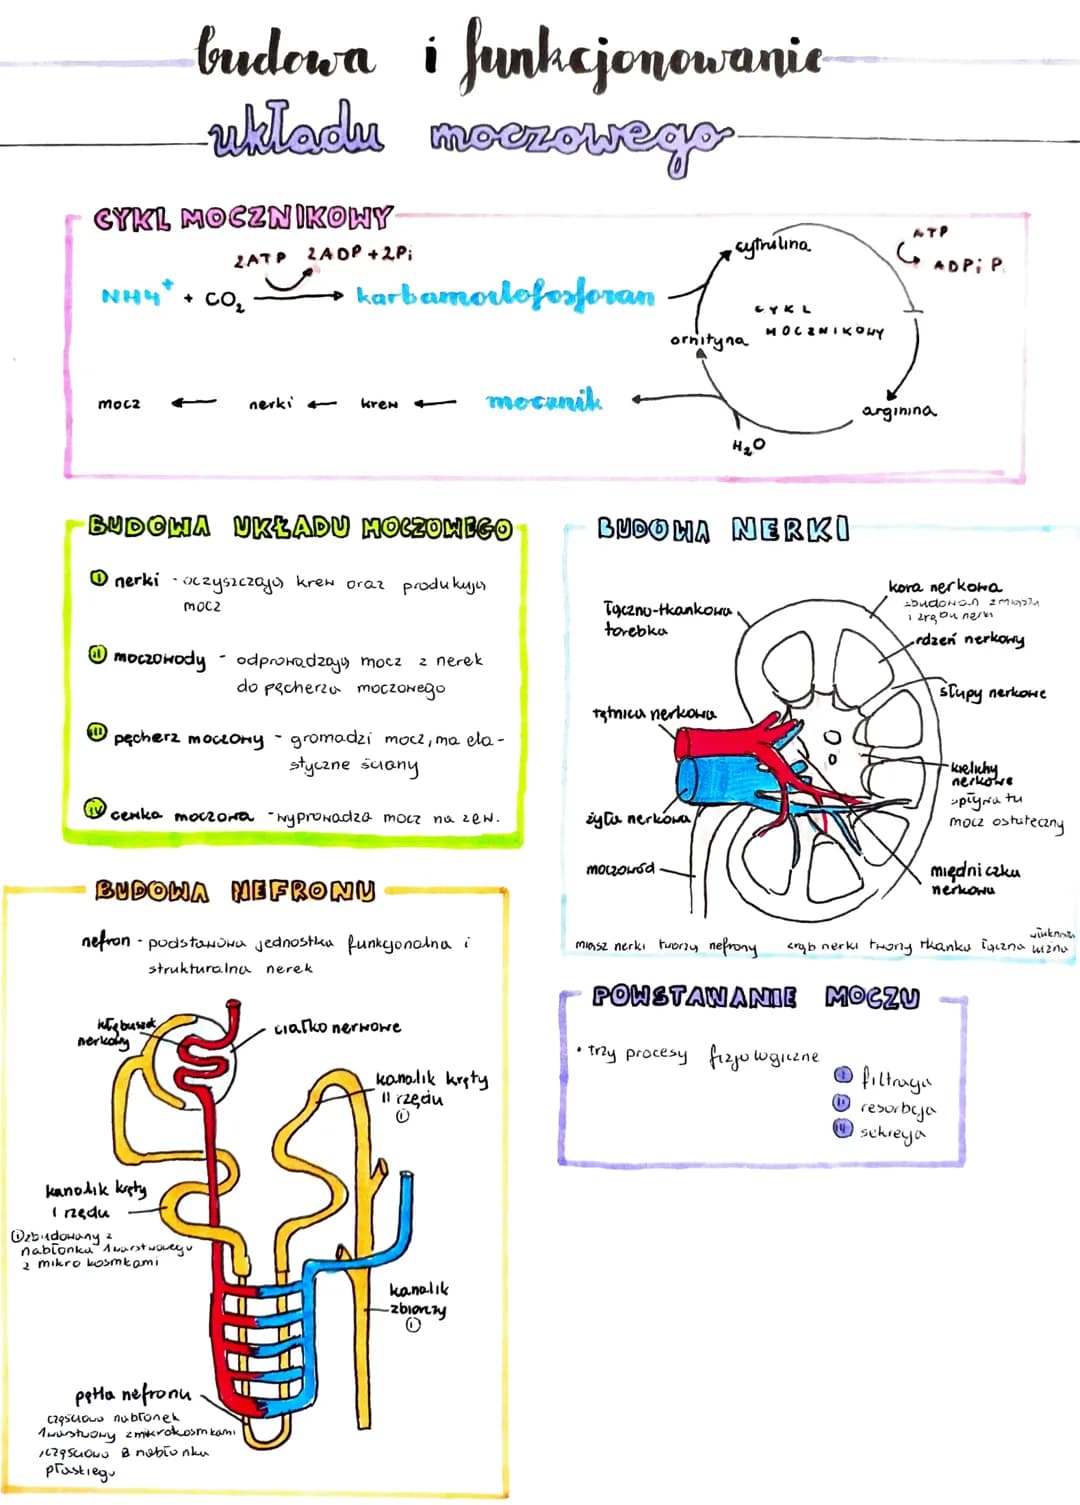 budowa i funkcjonowanie
układu moczowego
CYKL MOCZNIKOWY
2ATP 2ADP + 2Pi
NH4+ + CO2 → karbamoilofosforan
cytrulina
ATP
ADP i P.
CYKL
MOCZNIKOWY
ornityna
arginina
H2O
mocz ← nerki ← krew ← mocznik
BUDOWA UKŁADU MOCZOWEGO
I nerki - oczyszczają krew oraz produkują
mocz
II moczowody - odprowadzają mocz z nerek
do pęcherza moczowego
III pęcherz moczowy - gromadzi mocz, ma ela-
styczne ściany
IV cewka moczowa - wyprowadza mocz na zew.
BUDOWA NERKI
łączno-tkankowa
torebka
kora nerkowa
zbudowan z miąższu
i zrębu nerki
rdzeń nerkowy
słupy nerkowe
tętnica nerkowa
kielichy
nerkowe
spływa tu
mocz ostateczny
żyła nerkowa
moczowód
miedniczka
nerkowa
miąsz nerki tworzy nefrony
zrąb nerki tworzy tkanka łączna
BUDOWA NEFRONU
nefron - podstawowa jednostka funkcjonalna i
strukturalna nerek
kłębuszek
nerkowy
ciałko nerwowe
kanalik kręty
II rzędu
I
kanalik kręty
I rzędu
I zbudowany z
nabłonka 1warstwowego
z mikro kosmkami
kanalik
zbiorczy
I
pętla nefronu
częściowo nabłonek
1warstwowy z mikrokosmkami
i częściowo z nabłonka
płaskiego
POWSTAWANIE MOCZU
• trzy procesy fizjologiczne
I filtracja
II resorbcja
III sekrecja